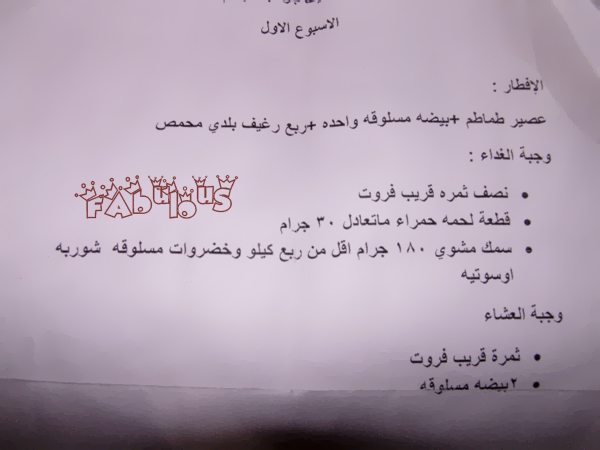 الاسبوع الاول
الإفطار :
عصير طماطم +بيضه مسلوقه واحده +ربع رغيف بلدي محمص
وجبة الغداء :
• نصف ثمره قريب فروت
FAbulous
• قطعة لحمه حمراء ماتعادل ٣٠ جرام
• سمك مشوي ١٨٠ جرام اقل من ربع كيلو وخضروات مسلوقه شوربه
اوسوتيه
وجبة العشاء
• ثمرة قريب فروت
• ٢بيضه مسلوقه